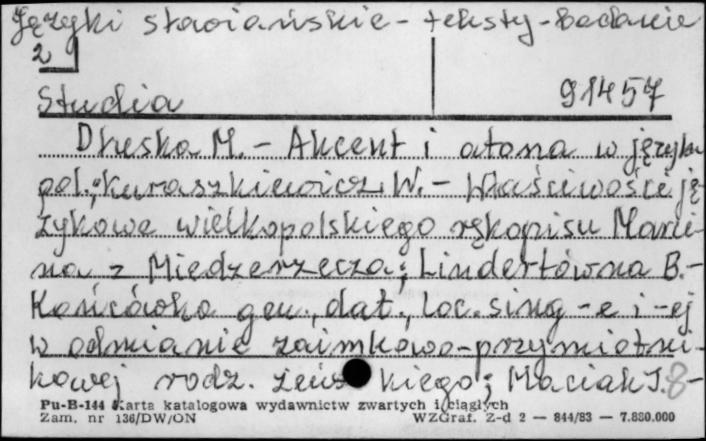 Języki słowiańskie - teksty - badanie
2
Studia 91457
Dłuska M. - Akcent i atona w języku
pol.; Kuraszkiewicz W. - Właściwości ję-
zykowe wielkopolskiego rękopisu Marci-
na z Miedzerzecza; Lindertówna B. -
Końcówka gen., dat., loc. sing -e i -ej
w odmianie zaimkowo-przymiotni-
kowej rodz. żeńskiego; Maciak J. 8-
Pu-B-144 Karta katalogowa wydawnictw zwartych i ciągłych
Zam. nr 136/DW/ON WZGraf. Z-d 2 — 844/83 — 7.880.000